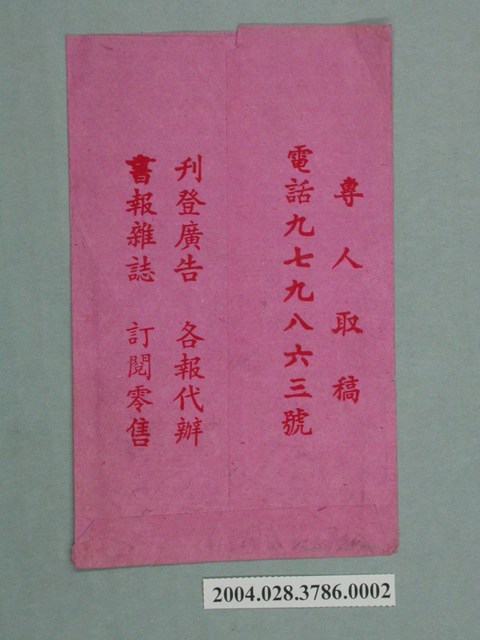 專人取稿
電話九七九八六三號
刊登廣告 各報代辦
書報雜誌 訂閱零售
2004.028.3786.0002